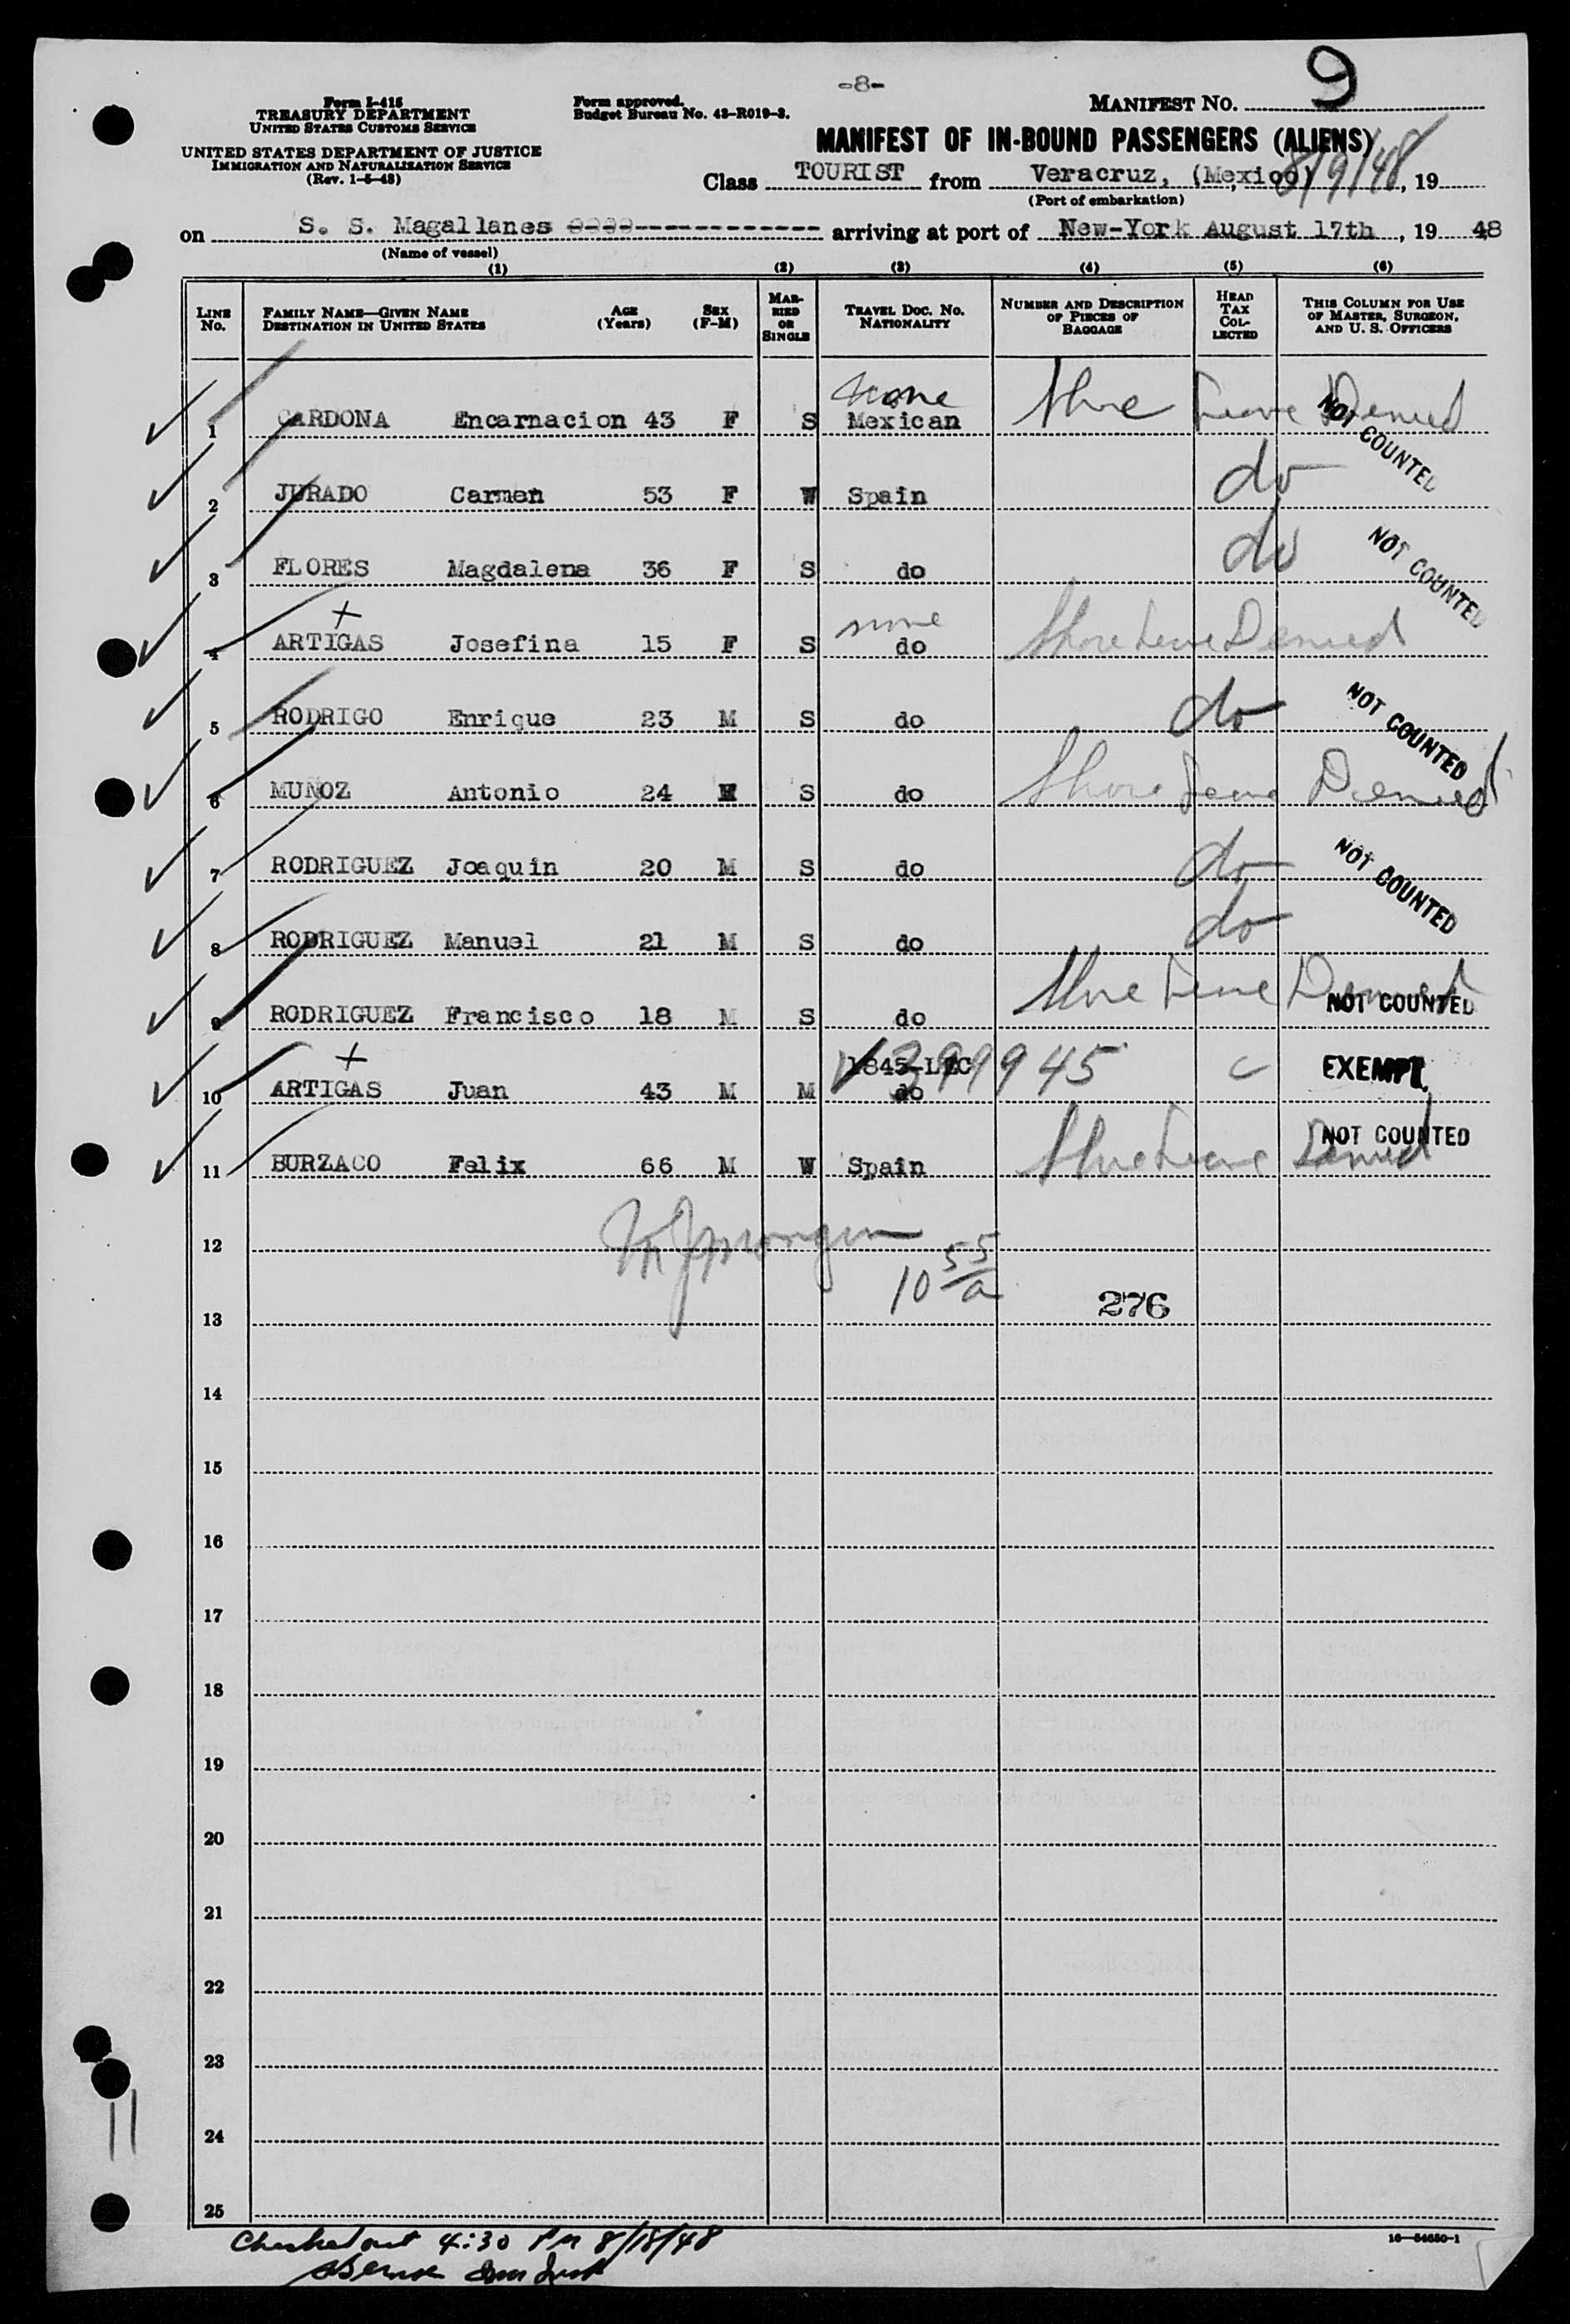 -8-
9
Form I-415
TREASURY DEPARTMENT
UNITED STATES CUSTOMS SERVICE
UNITED STATES DEPARTMENT OF JUSTICE
IMMIGRATION AND NATURALIZATION SERVICE
(Rev. 1-5-48)
Form approved.
Budget Bureau No. 43-R019-3.
MANIFEST NO.
MANIFEST OF IN-BOUND PASSENGERS (ALIENS)
Class TOURIST from Veracruz, (Mexico) 8/9/48, 19
(Port of embarkation)
on S. S. Magallanes arriving at port of New-York August 17th, 19 48
(Name of vessel)
(1) (2) (3) (4) (5) (6)
LINE No. FAMILY NAME—GIVEN NAME DESTINATION IN UNITED STATES AGE (Years) SEX (F-M) MARRIED OR SINGLE TRAVEL DOC. NO. NATIONALITY NUMBER AND DESCRIPTION OF PIECES OF BAGGAGE HEAD TAX COLLECTED THIS COLUMN FOR USE OF MASTER, SURGEON, AND U. S. OFFICERS
none
1 CARDONA Encarnacion 43 F S Mexican Shore Leave Denied NOT COUNTED
2 JURADO Carmen 53 F W Spain do
3 FLORES Magdalena 36 F S do do NOT COUNTED
x none
4 ARTIGAS Josefina 15 F S do Shore Leave Denied
5 RODRIGO Enrique 23 M S do do NOT COUNTED
6 MUÑOZ Antonio 24 M S do Shore Leave Denied
7 RODRIGUEZ Joaquin 20 M S do do NOT COUNTED
8 RODRIGUEZ Manuel 21 M S do do
9 RODRIGUEZ Francisco 18 M S do Shore Leave Denied NOT COUNTED
x EXEMPT.
10 ARTIGAS Juan 43 M M do
11 BURZACO Felix 66 M W Spain Shore Leave Denied NOT COUNTED
12
10 55/a
13 276
14
15
16
17
18
19
20
21
22
23
11
24
25
Checked out 4:30 PM 8/18/48
16—54650-1